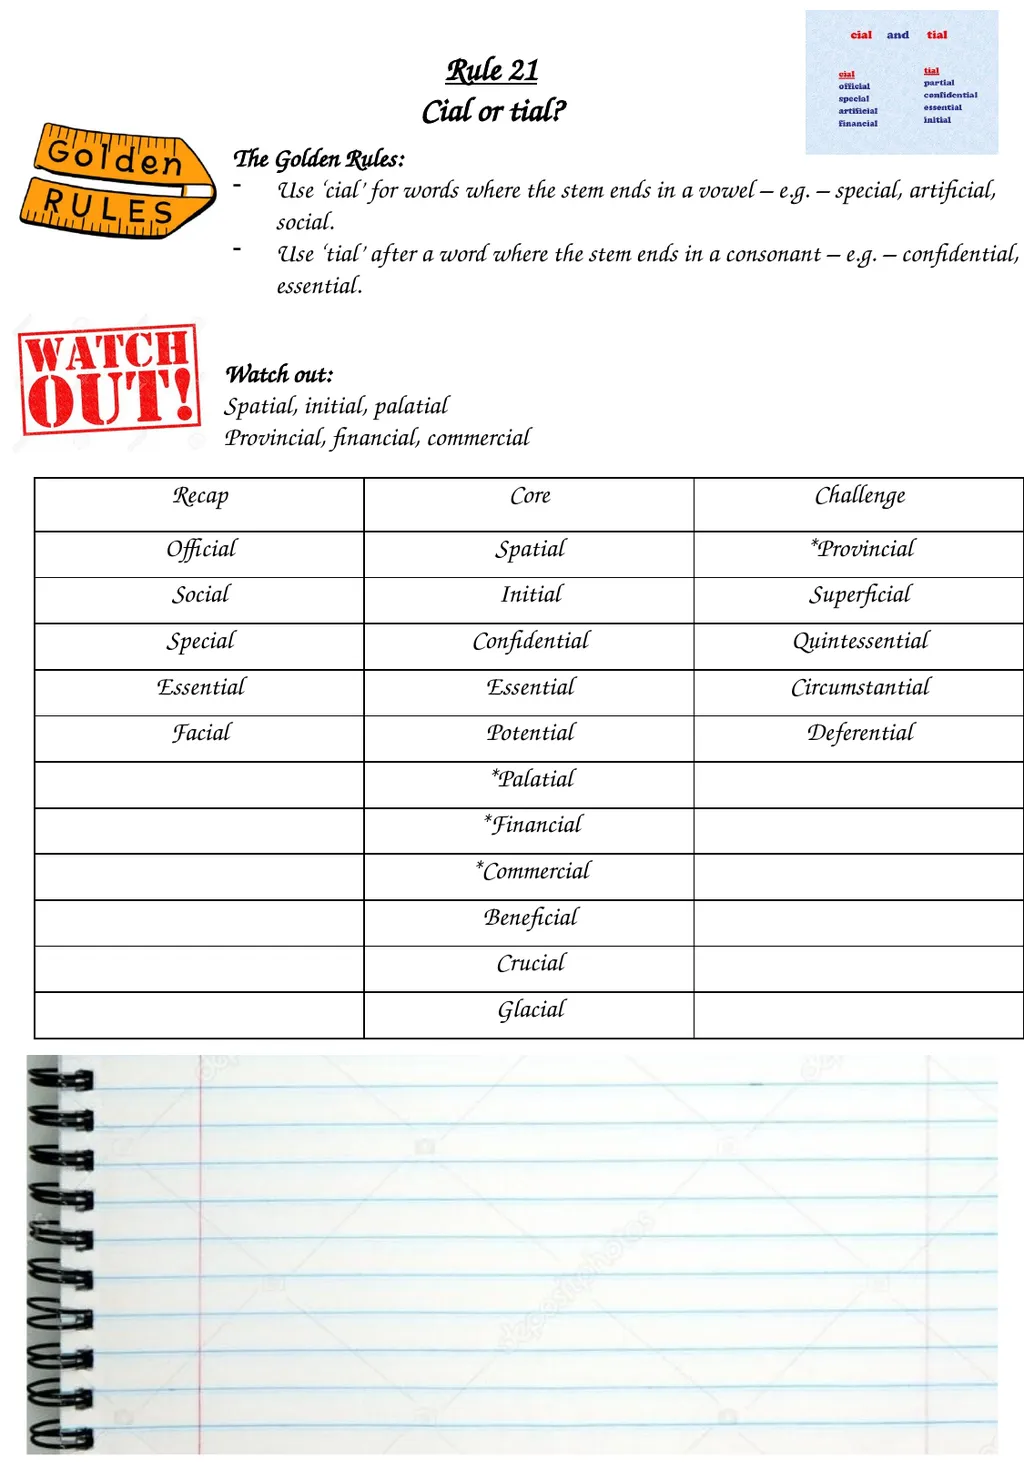 cial and tial
cial
official
special
artificial
financial
tial
partial
confidential
essential
initial
Rule 21
Cial or tial?
Golden
RULES
The Golden Rules:
- Use ‘cial’ for words where the stem ends in a vowel – e.g. – special, artificial,
social.
- Use ‘tial’ after a word where the stem ends in a consonant – e.g. – confidential,
essential.
WATCH
OUT!
Watch out:
Spatial, initial, palatial
Provincial, financial, commercial
Recap Core Challenge
Official Spatial *Provincial
Social Initial Superficial
Special Confidential Quintessential
Essential Essential Circumstantial
Facial Potential Deferential
*Palatial
*Financial
*Commercial
Beneficial
Crucial
Glacial
depositphotos